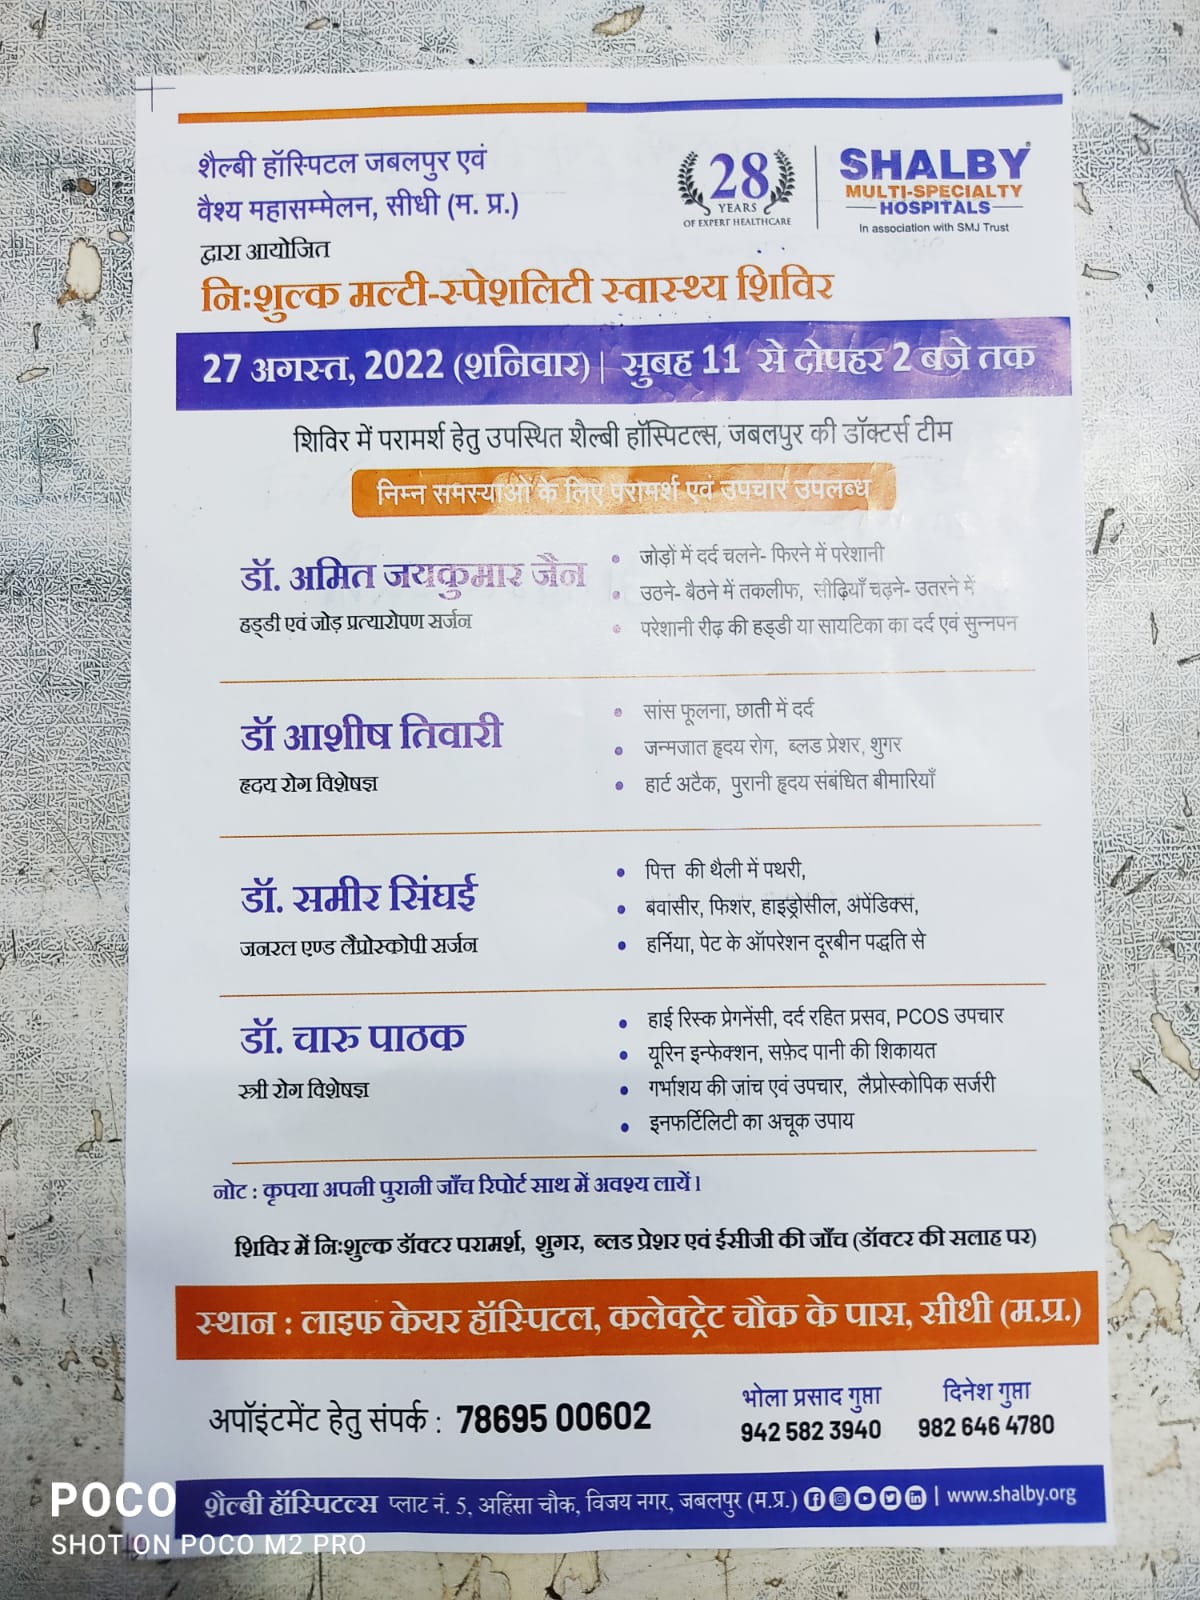 शैल्बी हॉस्पिटल जबलपुर एवं
वैश्य महासम्मेलन, सीधी (म. प्र.)
द्वारा आयोजित
28
YEARS
OF EXPERT HEALTHCARE
SHALBY
MULTI-SPECIALTY
HOSPITALS
In association with SMJ Trust
निःशुल्क मल्टी-स्पेशलिटी स्वास्थ्य शिविर
27 अगस्त, 2022 (शनिवार) | सुबह 11 से दोपहर 2 बजे तक
शिविर में परामर्श हेतु उपस्थित शैल्बी हॉस्पिटल्स, जबलपुर की डॉक्टर्स टीम
निम्न समस्याओं के लिए परामर्श एवं उपचार उपलब्ध
डॉ. अमित जयकुमार जैन
हड्डी एवं जोड़ प्रत्यारोपण सर्जन
• जोड़ों में दर्द चलने- फिरने में परेशानी
• उठने- बैठने में तकलीफ, सीढ़ियाँ चढ़ने- उतरने में
• परेशानी रीढ़ की हड्डी या सायटिका का दर्द एवं सुन्नपन
डॉ आशीष तिवारी
हृदय रोग विशेषज्ञ
• सांस फूलना, छाती में दर्द
• जन्मजात हृदय रोग, ब्लड प्रेशर, शुगर
• हार्ट अटैक, पुरानी हृदय संबंधित बीमारियाँ
डॉ. समीर सिंघई
जनरल एण्ड लैप्रोस्कोपी सर्जन
• पित्त की थैली में पथरी,
• बवासीर, फिशर, हाइड्रोसील, अपेंडिक्स,
• हर्निया, पेट के ऑपरेशन दूरबीन पद्धति से
डॉ. चारु पाठक
स्त्री रोग विशेषज्ञ
• हाई रिस्क प्रेगनेंसी, दर्द रहित प्रसव, PCOS उपचार
• यूरिन इन्फेक्शन, सफ़ेद पानी की शिकायत
• गर्भाशय की जांच एवं उपचार, लैप्रोस्कोपिक सर्जरी
• इनफर्टिलिटी का अचूक उपाय
नोट : कृपया अपनी पुरानी जाँच रिपोर्ट साथ में अवश्य लायें।
शिविर में निःशुल्क डॉक्टर परामर्श, शुगर, ब्लड प्रेशर एवं ईसीजी की जाँच (डॉक्टर की सलाह पर)
स्थान : लाइफ केयर हॉस्पिटल, कलेक्ट्रेट चौक के पास, सीधी (म.प्र.)
अपॉइंटमेंट हेतु संपर्क : 78695 00602
भोला प्रसाद गुप्ता
942 582 3940
दिनेश गुप्ता
982 646 4780
शैल्बी हॉस्पिटल्स प्लाट नं. 5, अहिंसा चौक, विजय नगर, जबलपुर (म.प्र.) | www.shalby.org
POCO
SHOT ON POCO M2 PRO